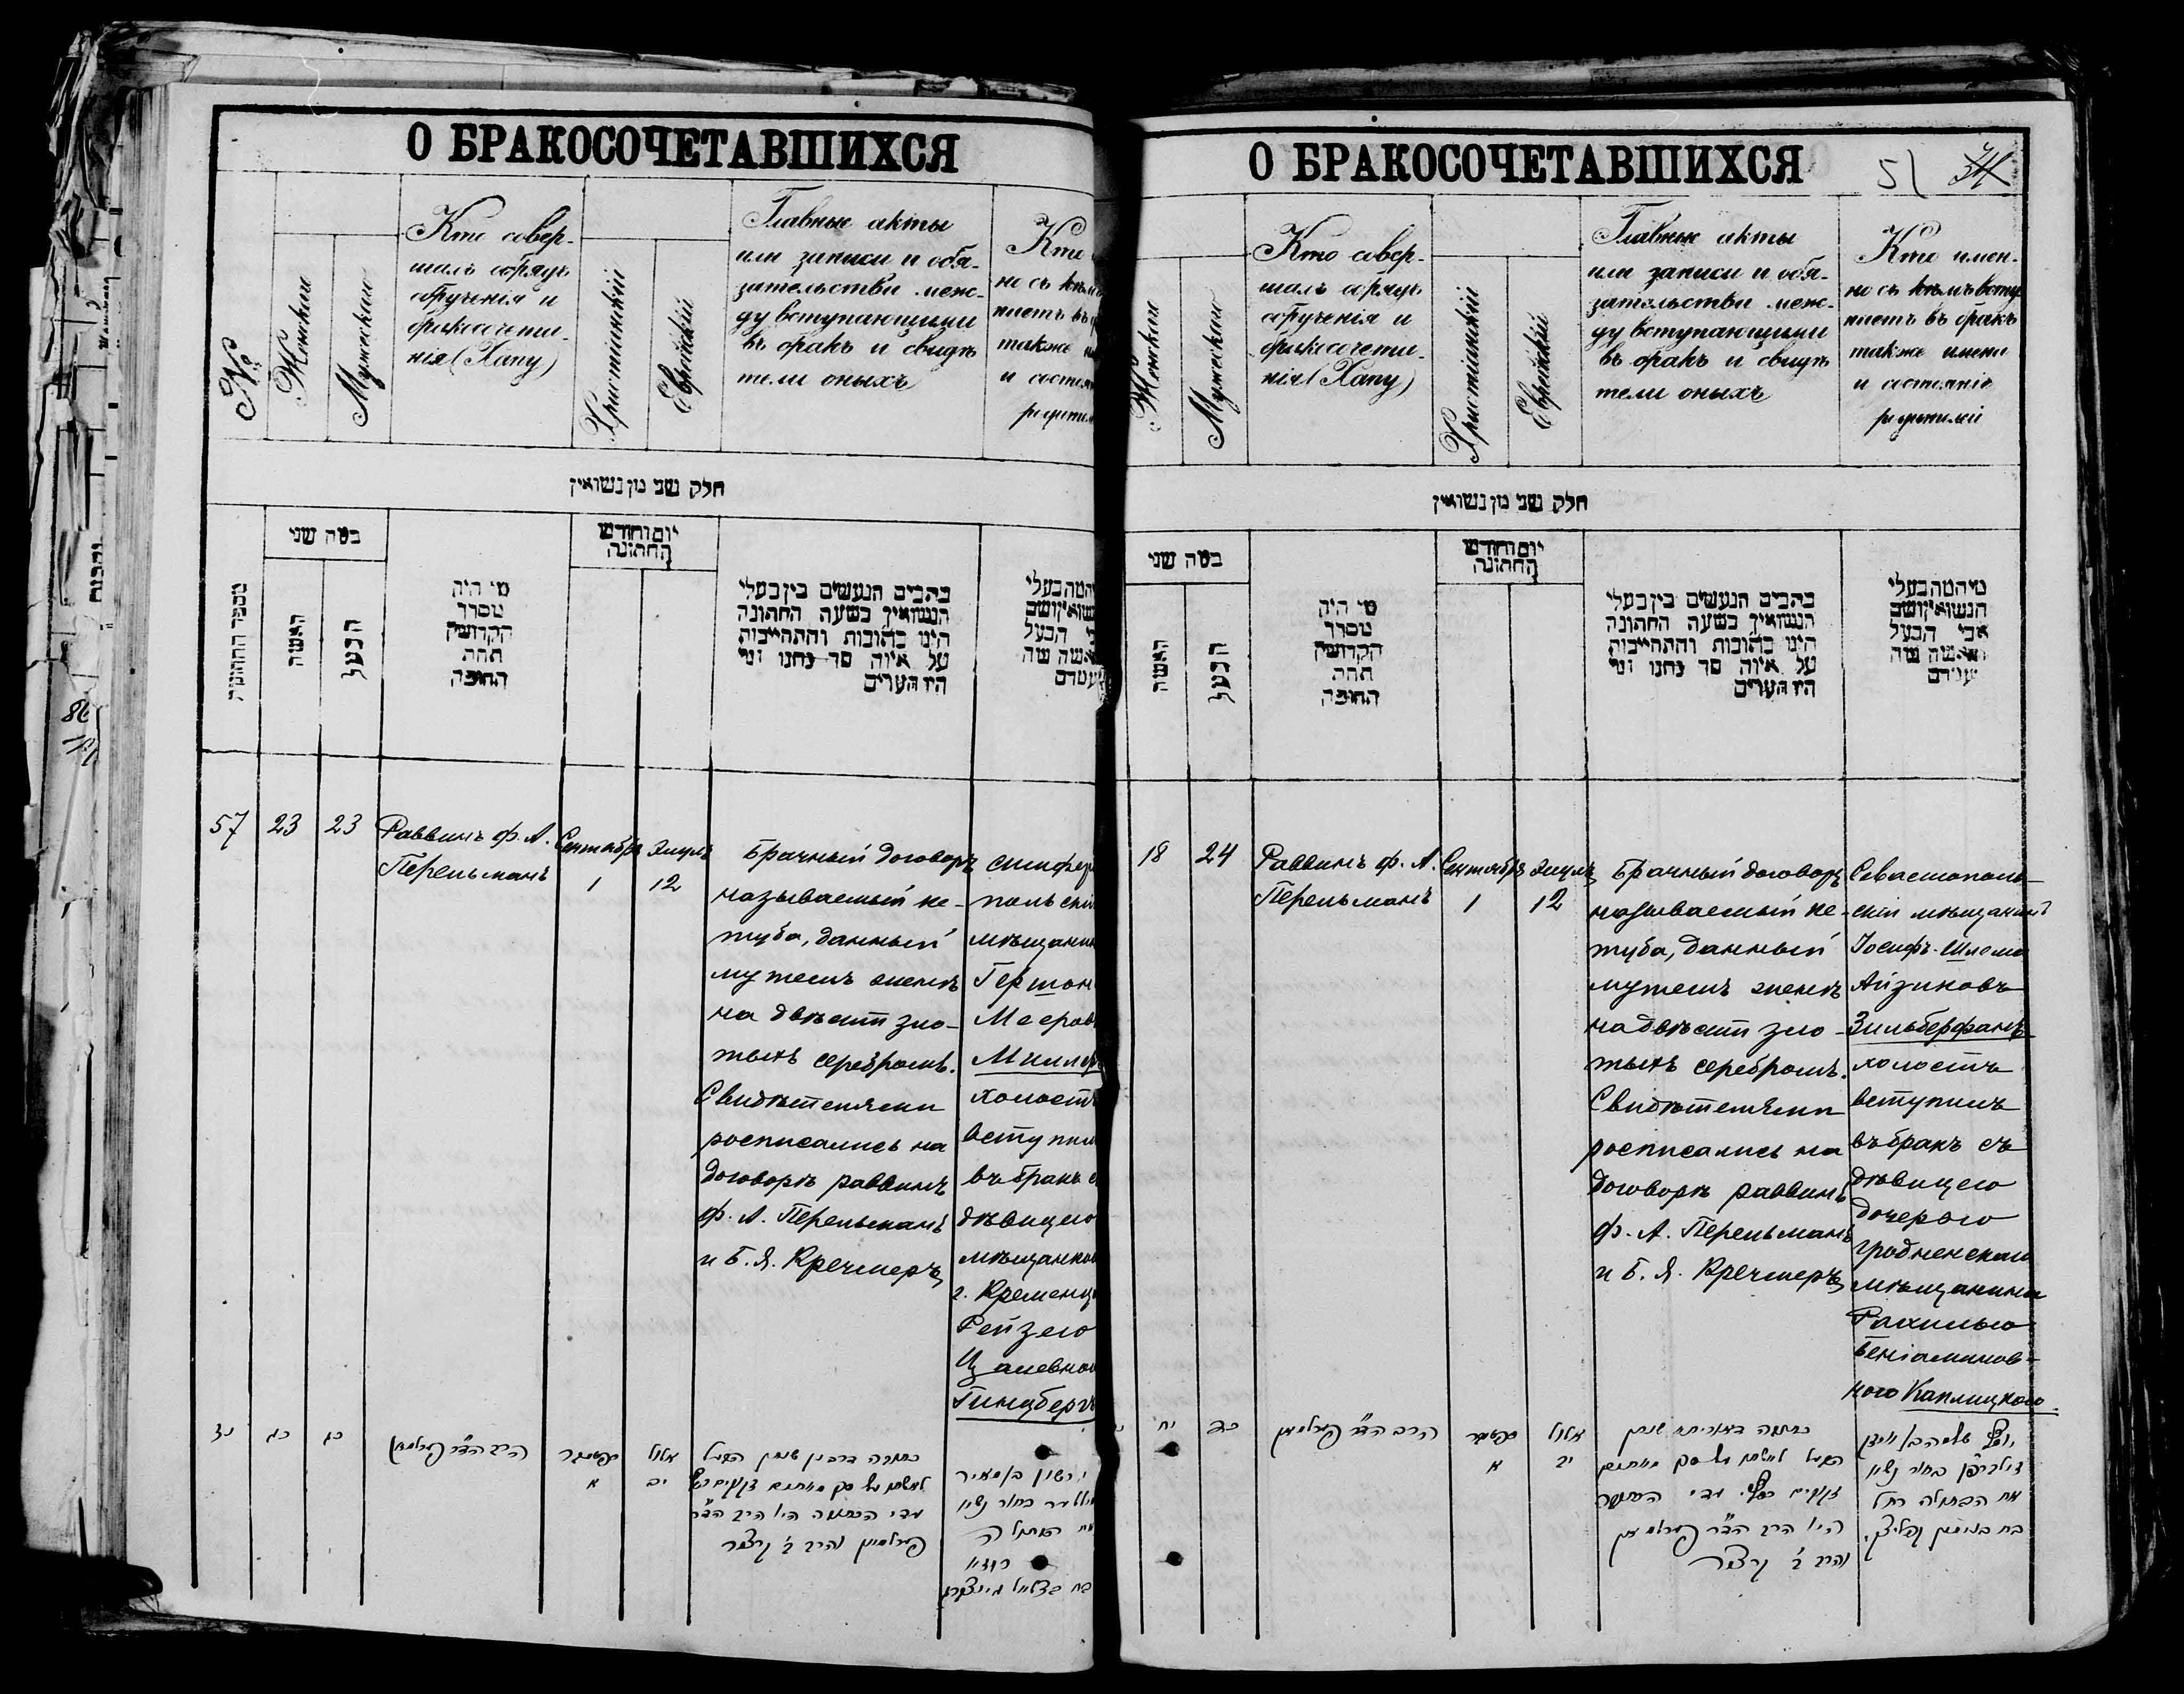 О БРАКОСОЧЕТАВШИХСЯ
№
Женская
Мужеская
Кто совер-
шалъ обрядъ
обрученія и
бракосочета-
нія (Хапу)
Христіанскій
Еврейскій
Главные акты
или записи и обя-
зательства меж-
ду вступающими
въ бракъ и свидѣ
тели оныхъ
Кто
но съ кѣмъ
паетъ въ
также
и состоя
родител
חלק שני מן נשואין
מספר החתונות
כמה שני
האשה
הבעל
מי היה
מסדר
הקדושין
תחת
החופה
יום וחודש
החתונה
כתבים הנעשים בין בעלי
הנשואין בשעה החתונה
היינו כתובות והתחייבות
על איזה סך נתנו ומי
היו העדים
57
23
23
Раввинъ Ф. А.
Перельманъ
Сентябрь
1
Элулъ
12
Брачный договоръ
называемый ке-
туба, данный
мужемъ женѣ
на двѣсти зло-
тыхъ серебромъ.
Свидѣтелями
росписались на
договорѣ раввинъ
Ф. А. Перельманъ
и Б. Я. Кречмеръ
Симферо
польскій
мѣщанин
Гершон
Мееров
Миллеръ
холостъ
вступил
въ бракъ с
дѣвицею
мѣщанкою
г. Кременц
Рейзею
Цалевною
Гинцбергъ
נז
כג
כג
הרב הד"ר פערלמאן
סעפטעמבר
א
אלול
יב
פערלמאן והרב ב' קרצמר
גרשון בן מאיר
מיללער בחור נשוי
О БРАКОСОЧЕТАВШИХСЯ
51
Женская
Мужеская
Кто совер-
шалъ обрядъ
обрученія и
бракосочета-
нія (Хапу)
Христіанскій
Еврейскій
Главные акты
или записи и обя-
зательства меж-
ду вступающими
въ бракъ и свидѣ
тели оныхъ
Кто имен-
но съ кѣмъ всту
паетъ въ бракъ
также имена
и состояніе
родителей
חלק שני מן נשואין
כמה שני
האשה
הבעל
מי היה
מסדר
הקדושין
תחת
החופה
יום וחודש
החתונה
כתבים הנעשים בין בעלי
הנשואין בשעה החתונה
היינו כתובות והתחייבות
על איזה סך נתנו ומי
היו העדים
18
24
Раввинъ Ф. А.
Перельманъ
Сентябрь
1
Элулъ
12
Брачный договоръ
называемый ке-
туба, данный
мужемъ женѣ
на двѣсти зло-
тыхъ серебромъ.
Свидѣтелями
росписались на
договорѣ раввинъ
Ф. А. Перельманъ
и Б. Я. Кречмеръ
Севастополь-
скій мѣщанинъ
Іосифъ-Шлема
Айзиковъ
Зильберфанъ
холостъ
вступилъ
въ бракъ съ
дѣвицею
дочерью
гродненскаго
мѣщанина
Рахилью
Беніаминов-
ною Каплицкою.
יח
כד
הרב הד"ר פערלמאן
סעפטעמבר
א
אלול
יב
היו הרב הד"ר פערלמאן
והרב ב' קרצמר
את הבתולה רחל